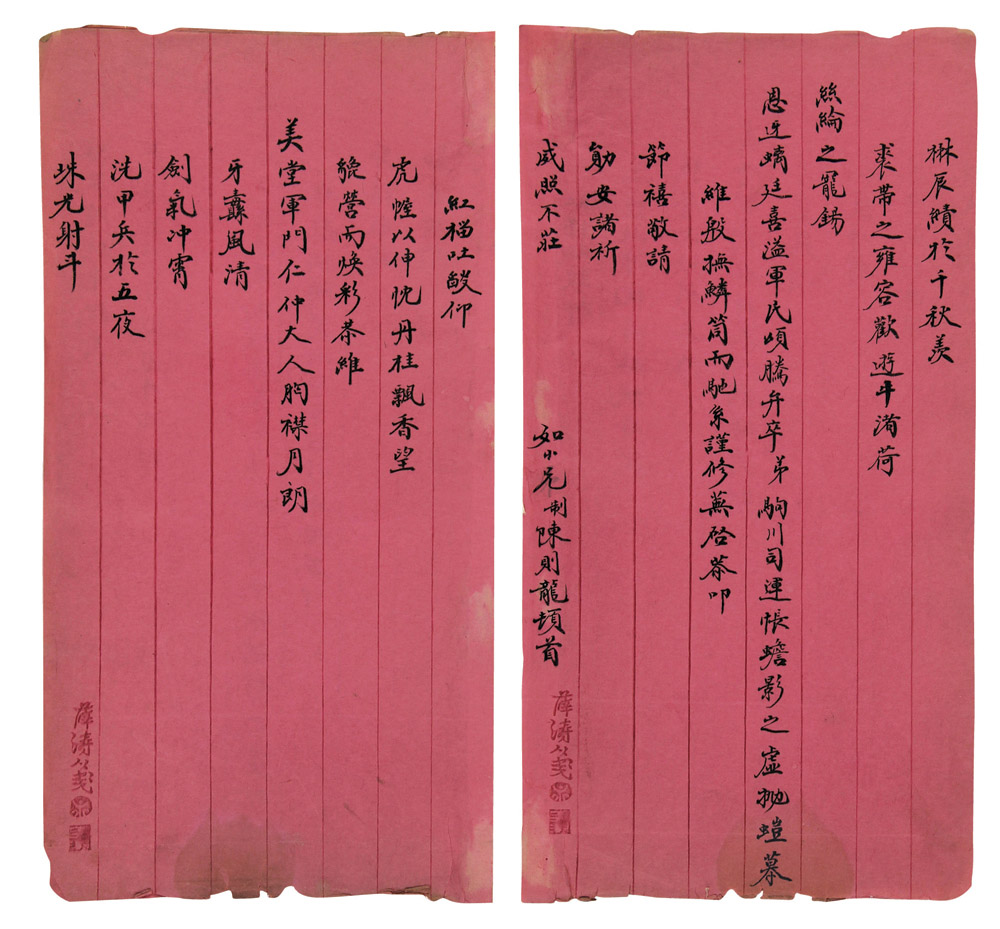 紅榴吐醆仰
虎幄以伸忱丹桂飄香望
貔營而煥彩恭維
美堂軍門仁仲大人胸襟月朗
牙纛風清
劍氣冲霄
洗甲兵於五夜
珠光射斗
薛濤箋
辰績於千秋羨
裘帶之雍容歡遊斗湑荷
絲綸之寵錫
恩迓螭廷喜溢軍民頌騰弁卒弟駒川司運悵蟾影之虛拋螘慕
維殷撫鱗筒而馳系謹修蕪啓恭叩
節禧敬請
勛安諸祈
盛照不莊
如小兄制陳則龍頓首
薛濤箋